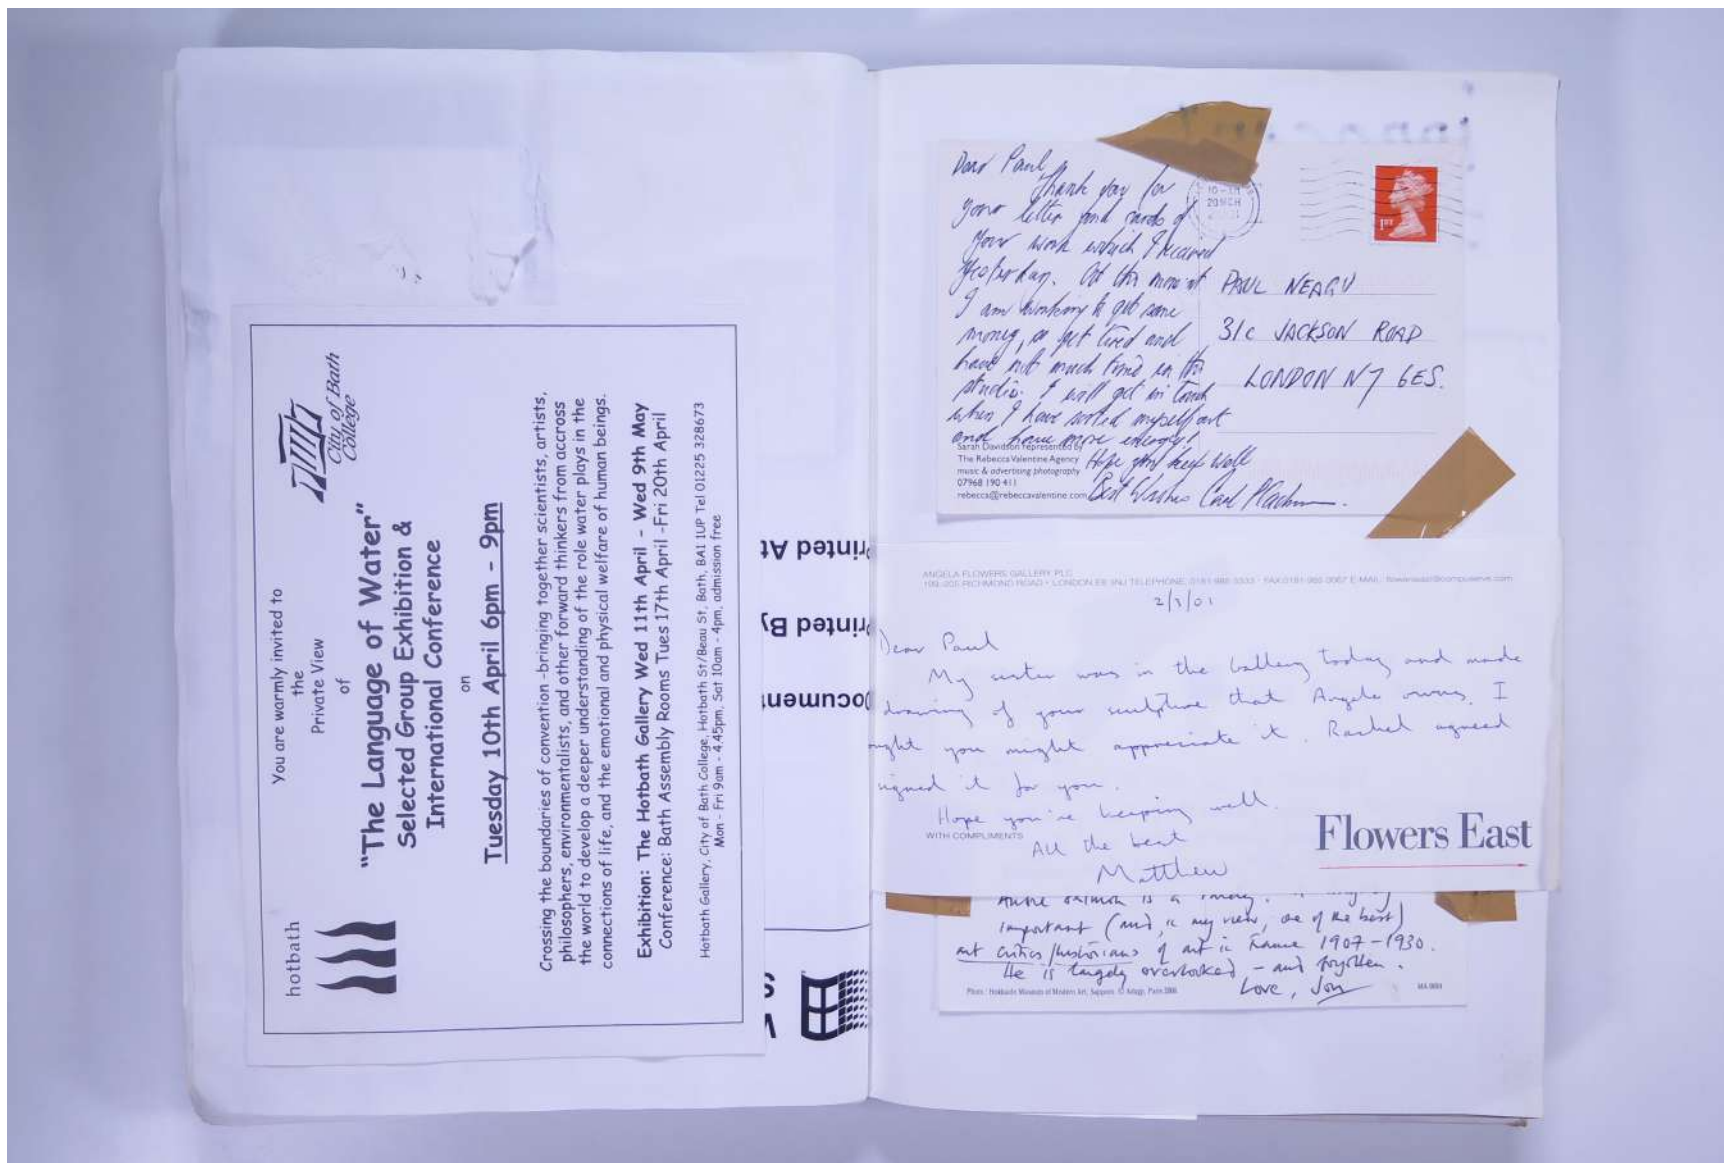 hotbath
City of Bath
College
You are warmly invited to
the
Private View
of
"The Language of Water"
Selected Group Exhibition &
International Conference
on
Tuesday 10th April 6pm - 9pm
Crossing the boundaries of convention -bringing together scientists, artists,
philosophers, environmentalists, and other forward thinkers from accross
the world to develop a deeper understanding of the role water plays in the
connections of life, and the emotional and physical welfare of human beings.
Exhibition: The Hotbath Gallery Wed 11th April - Wed 9th May
Conference: Bath Assembly Rooms Tues 17th April -Fri 20th April
Hotbath Gallery, City of Bath College, Hotbath St/Beau St, Bath, BA1 1UP Tel 01225 328673
Mon - Fri 9am - 4.45pm, Sat 10am - 4pm, admission free
Printed At
Printed By
Document
Dear Paul,
Thank you for
your letter and cards of
your work which I received
yesterday. At this moment
I am working to get some
money, so get tired and
have not much time in the
studio. I will get in touch
when I have sorted myself out
and have more energy!
Hope you keep well
Best Wishes Carl
Sarah Davidson represented by
The Rebecca Valentine Agency
music & advertising photography
07968 190 411
rebecca@rebeccavalentine.com
20 MCH
1ST
PAUL NEAGU
31c JACKSON ROAD
LONDON N7 6ES.
ANGELA FLOWERS GALLERY PLC
199-205 RICHMOND ROAD • LONDON E8 3NJ TELEPHONE: 0181-985 3333 FAX:0181-985 0067 E-MAIL:
2/3/01
Dear Paul
My sister was in the Gallery today and made
drawing of your sculpture that Angela owns. I
ught you might appreciate it. Rachel agreed
signed it for you.
Hope you're keeping well.
All the best
Matthew
WITH COMPLIMENTS
Flowers East
André Salmon is a
important (and, in my view, one of the best)
art critics/historians of art in France 1907-1930.
He is largely overlooked - and forgotten.
Love, Jon
Photo: Hokkaido Museum of Modern Art, Sapporo. © Adagp, Paris